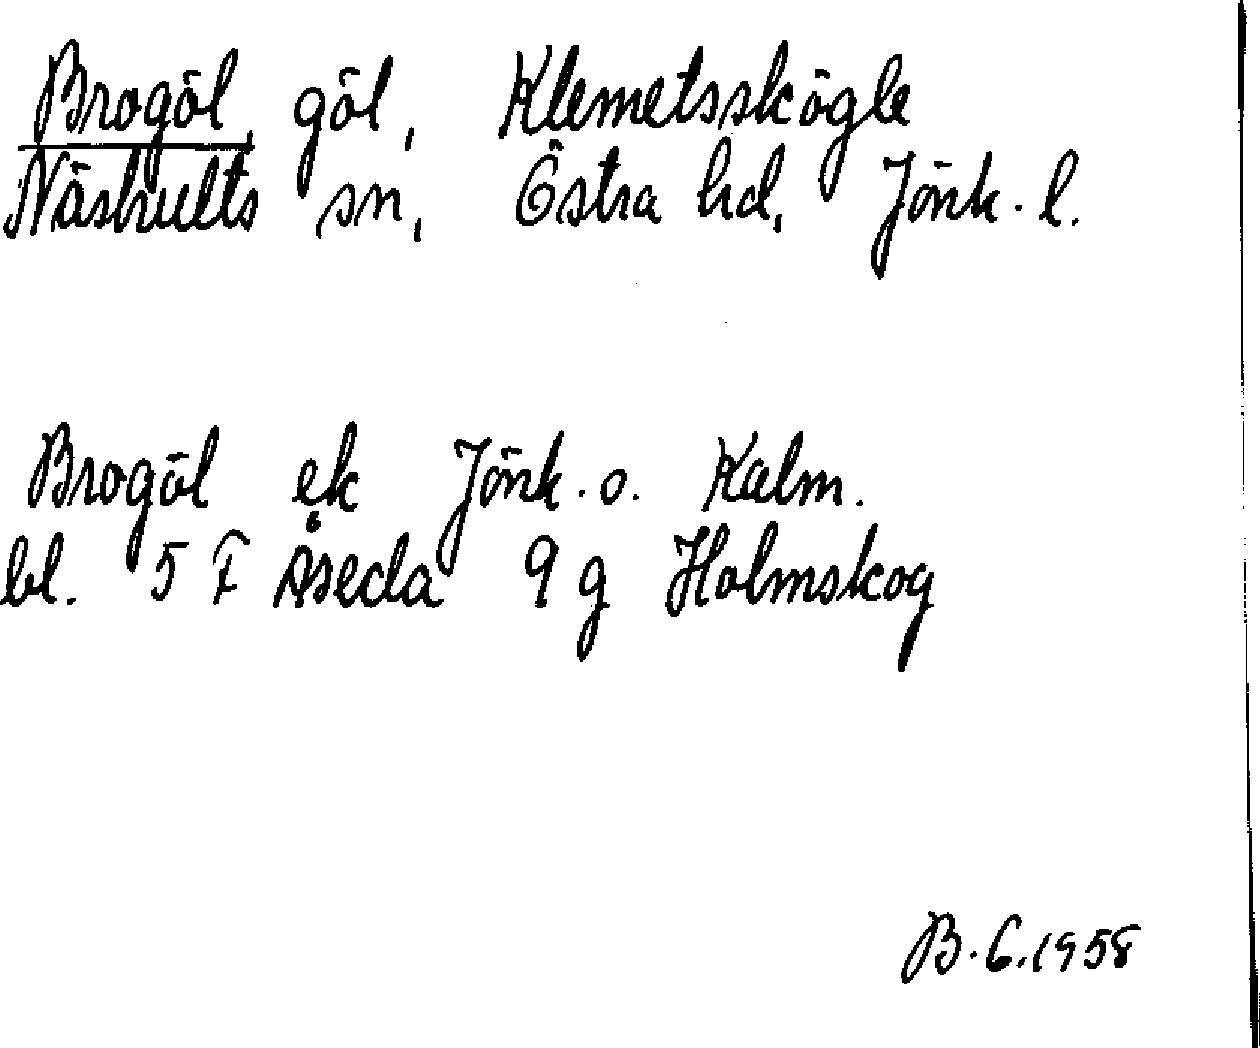 Brogöl, göl, Klemetsskögle
Näshults sn, Östra hd, Jönk. l.
Brogöl ek Jönk. o. Kalm.
bl. 5 F Åseda 9 g Holmskog
B. G. 1958